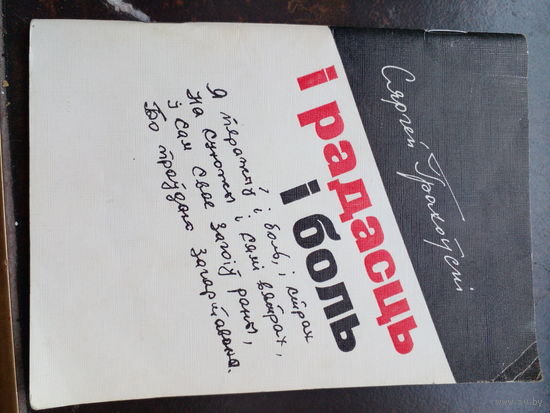 Сяргей Грахоўскі
і радасць
і боль
Я перажыў і боль, і страх
На сухожы і сямі вятрах,
І сам свае загоіў раны,
Бо праўдаю загартаваны.